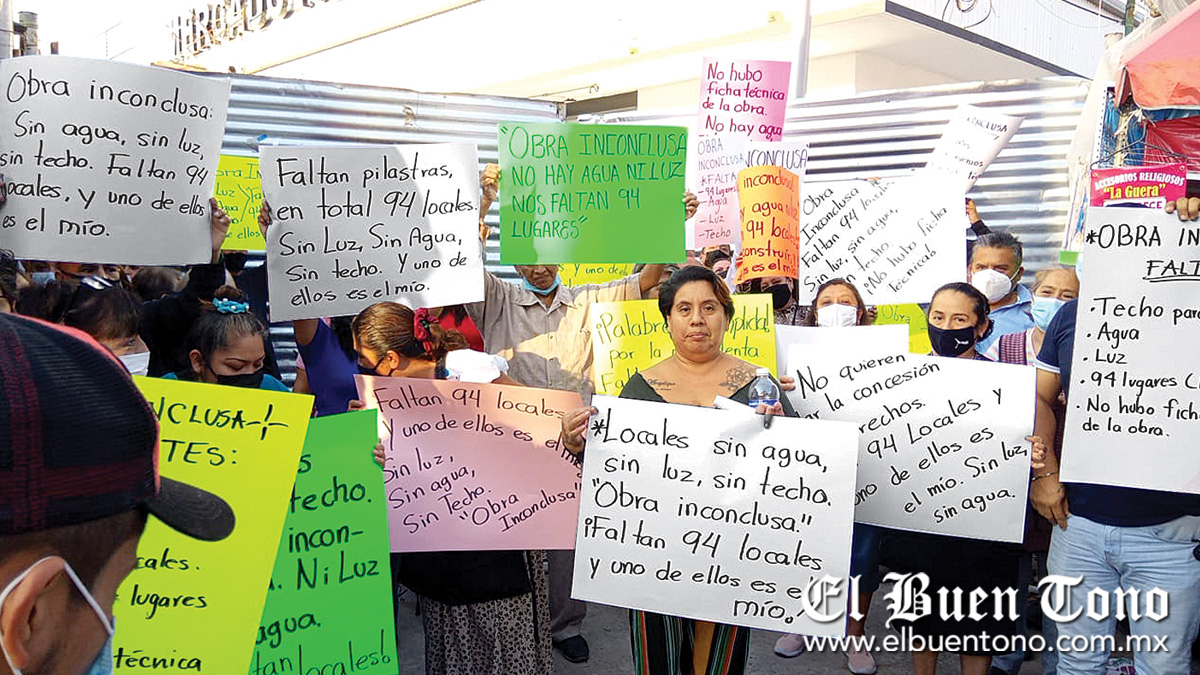 MERCADO
Obra inconclusa:
Sin agua, sin luz,
sin techo. Faltan 94
locales, y uno de ellos
es el mío.
Luz y
Faltan pilastras,
en total 94 locales.
Sin Luz, Sin Agua,
Sin techo. Y uno de
ellos es el mío.
"OBRA INCONCLUSA
NO HAY AGUA NI LUZ
NOS FALTAN 94
LUGARES"
No hubo
ficha técnica
de la obra.
No hay agua
OBRA
INCONCLUSA
*FALTAN
- 94 lugares
- Agua
- Luz
- Techo
INCONCLUSA
inconclusa.
y agua
94
es el m
Obra
Inconclusa.
Faltan 94 locales,
Sin luz, sin agua,
Sin techo.
¡No hubo ficha
Técnica!
ACCESORIOS RELIGIOSOS
"La Guera"
*OBRA IN
FALT
· Techo par
· Agua
· Luz
· 94 lugares
· No hubo fich
de la obra.
¡Palabra
por la
No quieren
la concesión
erechos.
94 Locales y
no de ellos es
el mío. Sin luz,
sin agua.
NCLUSA
TES:
cales.
lugares
técnica
techo.
incon-
. Ni Luz
agua.
tan locales!
Faltan 94 locales
y uno de ellos es el mí
Sin luz,
Sin agua,
Sin Techo.
"Obra
Inconclusa"
*Locales sin agua,
sin luz, sin techo.
"Obra inconclusa."
¡Faltan 94 locales
y uno de ellos es el
mío!
El Buen Tono
www.elbuentono.com.mx